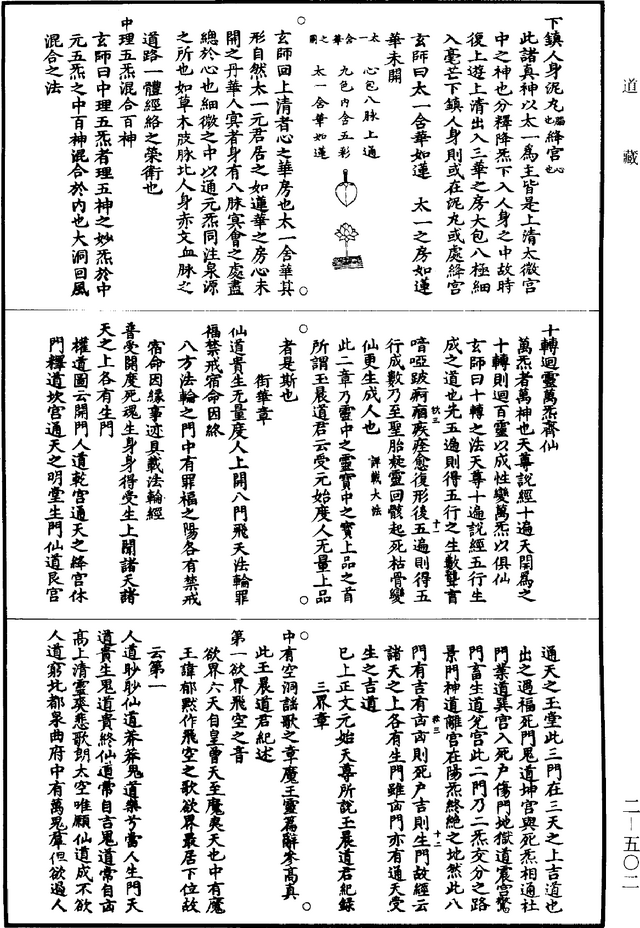 道藏
下鎮人身泥丸腦也絳宮心也
此諸真神以太一為主皆是上清太微宮
中之神也分釋降炁下入人身之中故時
復上遊上清出入二華之房大包八極細
入毫芒下鎮人身則或在泥丸或處絳宮
玄師曰太一含華如蓮　太一之房如蓮
華未開
太一含華之圖
心包八脉上通
九色內含五彩
太一含華如蓮
玄師回上清者心之華房也太一含華其
形自然太一元君居之如蓮華之房心未
開之丹華人賓者身有八脉賓會之處盡
總於心也細微之中以通元炁同注泉源
之所也如草木肢脉比人身赤文血脉之
道路一體經絡之榮衛也
中理五炁混合百神
玄師曰中理五炁者理五神之妙炁於中
元五炁之中百神混合於內也大洞回風
混合之法
十轉迴靈萬炁齊仙
萬炁者萬神也天尊說經十遍天開為之
十轉則迴百靈以成性變萬炁以俱仙
玄師曰十轉之法天尊十遍說經五行生
成之道也先五遍則得五行之生數聾盲
瘖啞跛痾癩疾痊愈復形後五遍則得五
行成數乃至聖胎凝靈回骸起死枯骨變
仙更生成人也　詳載大法
此二章乃靈中之靈寶中之寶上品之首
所謂玉晨道君云受元始度人無量上品
者是斯也
衛華章
仙道貴生無量度人上開八門飛天法輪罪
福禁戒宿命因緣
八方法輪之門中有罪福之陽各有禁戒
宿命因緣事迹具載法輪經
普受開度死魂生身身得受生上聞諸天諸
天之上各有生門
權道圖云開門人道乾宮通天之絳宮休
門釋道坎宮通天之明堂生門仙道艮宮
通天之玉堂此三門在三天之上吉道也
出之遇福死門鬼道坤宮與死炁相通杜
門業道巽宮入死戶傷門地獄道震宮驚
門畜生道兌宮此二門乃二炁交分之路
景門神道離宮在陽炁終絕之地然此八
門有吉有凶凶則死戶吉則生門故經云
諸天之上各有生門雖凶門亦有通天受
生之吉道
已上正文元始天尊所說玉晨道君紀錄
三界章
中有空洞謠歌之章魔王靈篇辭參高真
此玉晨道君紀述
第一欲界飛空之音
欲界六天自皇曾天至魔夷天也中有魔
王諱郁默作飛空之歌欲界最居下位故
云第一
人道眇眇仙道莽莽鬼道樂兮當人生門天
道貴生鬼道貴終仙道常自吉鬼道常自凶
高上清靈爽悲歌朗太空唯願仙道成不欲
人道窮北都泉曲府中有萬鬼羣但欲遏人
二－五〇二